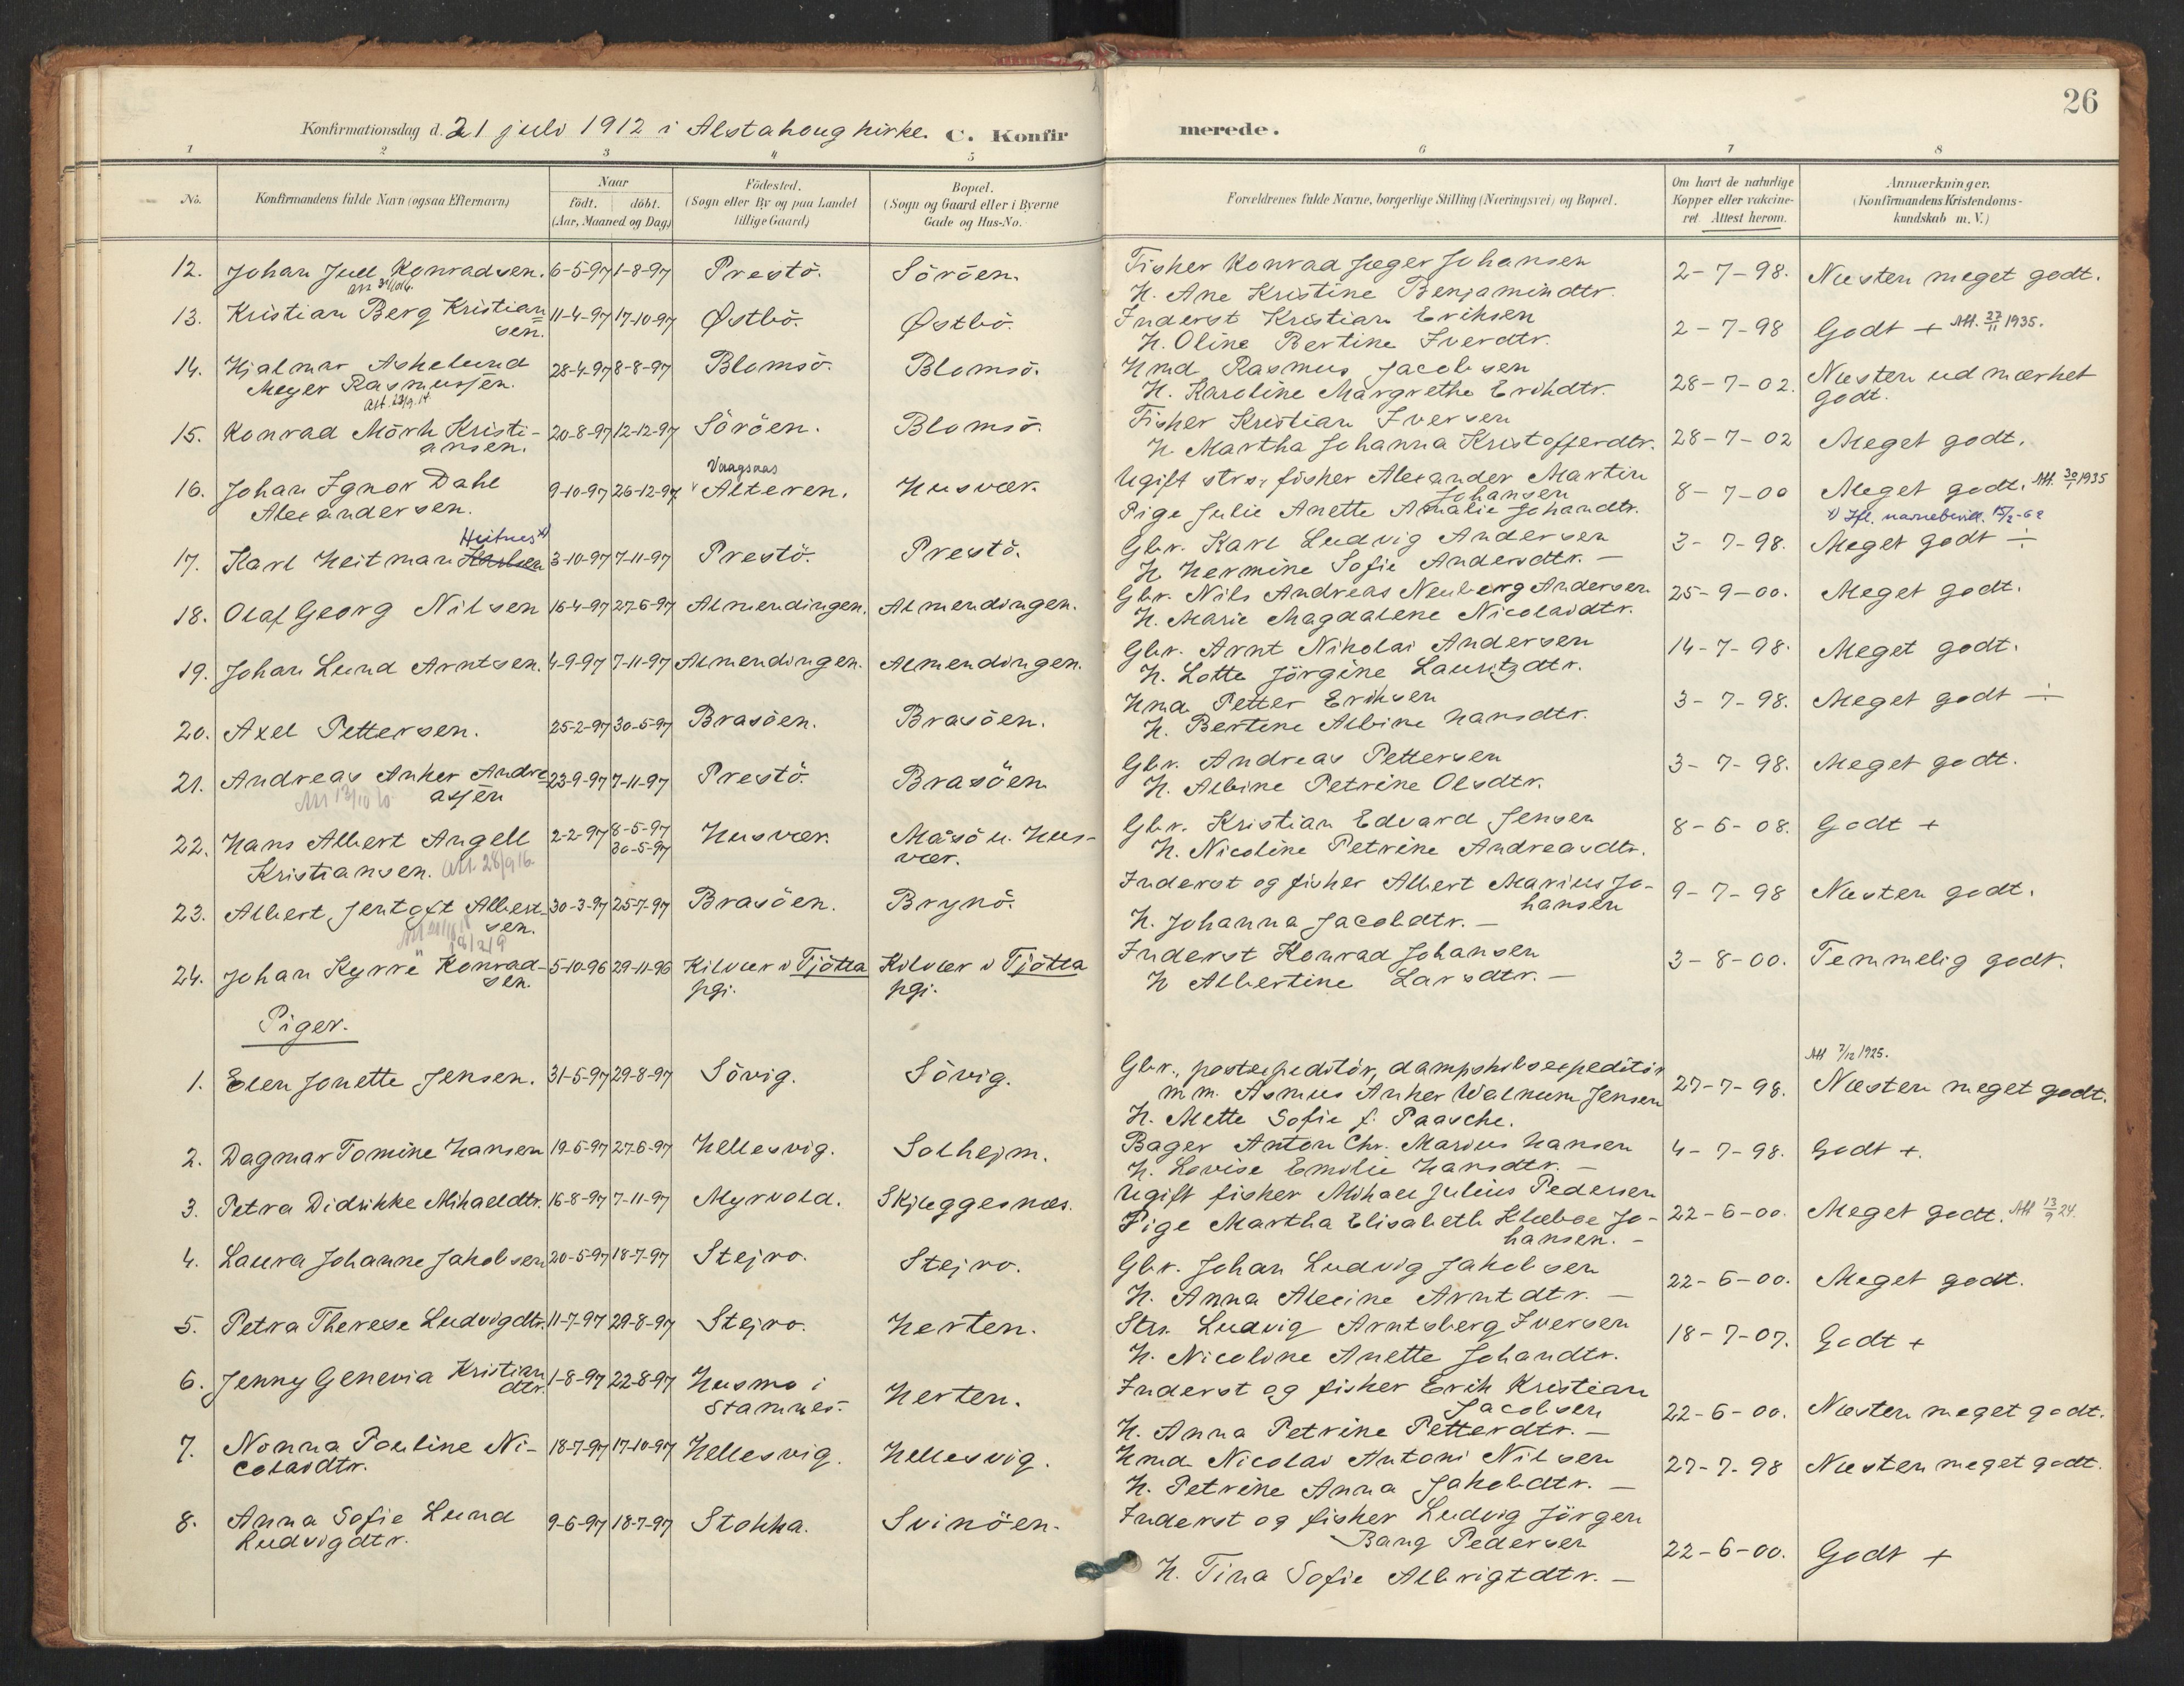 26
Konfirmationsdag d. 21 juli 1912 i Alstahoug kirke. C. Konfirmerede.
1 2 3 4 5 6 7 8
No.
Konfirmandens fulde Navn (ogsaa Efternavn)
Naar
födt. döbt.
(Aar, Maaned og Dag)
Födested.
(Sogn eller By og paa Landet
tillige Gaard)
Bopæl.
(Sogn og Gaard eller i Byerne
Gade og Hus-No.
Forældrenes fulde Navne, borgerlige Stilling (Næringsvei) og Bopæl.
Om havt de naturlige
Kopper eller vakcine-
ret. Attest herom.
Anmærkninger.
(Konfirmandens Kristendoms-
kundskab m. V.)
12. Johan Juel Konradsen. 6-5-97 1-8-97 Prestö. Söröen. Fisker Konrad Jæger Johansen 2-7-98. Næsten meget godt.
H. Ane Kristine Benjamindtr.
13. Kristian Berg Kristian= 11-4-97 17-10-97 Østbö. Østbö. Inderst Kristian Eriksen 2-7-98 Godt + Att. 27/11 1935.
sen. H. Oline Bertine Iverdtr.
14. Hjalmar Askelund 28-4-97 8-8-97 Blomsö. Blomsö. Hmd Rasmus Jacobsen 28-7-02. Næsten udmærket
Meyer Rasmussen. H. Karoline Margrethe Erikdtr. godt.
Att. 23/9.14
15. Konrad Mörk Kristi- 20-8-97 12-12-97 Söröen. Blomsö. Fisker Kristian Iversen 28-7-02 Meget godt.
ansen. H. Martha Johanna Kristofferdtr.
Vaagsaas
16. Johan Ignor Dahl 9-10-97 26-12-97 Alteren. Husvær. Ugift strs., fisker Alexander Martin 8-7-00 Meget godt. Att. 30/1 1935
Alexandersen. Johansen
Pige Julie Anette Amalie Johandtr. x) Ifl. navnebevill. 15/2-62
Heitnes x)
17. Karl Heitman Karlsen 3-10-97 7-11-97 Prestö. Prestö. Gbr. Karl Ludvig Andersen 3-7-98. Meget godt ÷
H. Hermine Sofie Andersdtr. —
18. Olaf Georg Nilsen 16-4-97 27-6-97 Almendingen. Almendingen. Gbr. Nils Andreas Neuberg Andersen 25-9-00. Meget godt.
H. Marie Magdalene Nicolaidtr.
19. Johan Lund Arntsen. 4-9-97 7-11-97 Almendingen. Almendingen. Gbr. Arnt Nikolai Andersen 14-7-98. Meget godt.
H. Lotte Jörgine Lauritzdtr.
20. Axel Pettersen. 25-2-97 30-5-97 Brasöen. Brasöen. Hmd Petter Eriksen 3-7-98. Meget godt ÷
H. Bertine Albine Hansdtr.
21. Andreas Anker Andre- 23-9-97 7-11-97 Prestö. Brasöen Gbr. Andreas Pettersen 3-7-98. Meget godt.
assen H. Albine Petrine Olsdtr.
22. Hans Albert Angell 2-2-97 8-5-97 Husvær. Måsö u. Hus- Gbr. Kristian Edvard Jensen 8-6-08. Godt +
30-5-97 vær.
Kristiansen. Att. 28/9 16. H. Nicoline Petrine Andreasdtr.
23. Albert Jentoft Albert- 30-3-97 25-7-97 Brasöen. Brynö. Inderst og fisker Albert Marius Jo- 9-7-98 Næsten godt.
sen. hansen
H. Johanna Jacobdtr. —
24. Johan Kyrre Konrad- 5-10-96 29-11-96 Kilvær i Tjötta Kilvær i Tjötta Inderst Konrad Johansen 3-8-00. Temmelig godt.
sen. pgj. pgj. H Albertine Larsdtr. —
Piger.
Att 7/12 1925.
1. Elen Jonette Jensen. 31-5-97 29-8-97 Sövig. Sövig. Gbr., postexpeditör, dampskibsexpeditör 27-7-98. Næsten meget godt.
m m. Asmus Anker Walnum Jensen
H. Mette Sofie f. Paasche.
2. Dagmar Tomine Hansen 19-5-97 27-6-97 Hellesvig. Solhejm. Bager Anton Chr. Marius Hansen 4-7-98. Godt +.
H. Lovise Emilie Hansdtr. —
3. Petra Didrikke Mikaeldtr. 16-8-97 7-11-97 Myrvold. Skjeggesnæs. Ugift fisker Mikael Julius Pedersen 22-6-00. Meget godt. Att 13/9 24.
Pige Martha Elisabeth Klæboe Jo-
hansen. —
4. Laura Johanne Jakobsen 20-5-97 18-7-97 Stejro. Stejro. Gbr. Johan Ludvig Jakobsen 22-6-00. Meget godt.
H. Anna Alecine Arntdtr. —
5. Petra Therese Ludvigdtr. 11-7-97 29-8-97 Stejro. Herten. Strs. Ludvig Arntsberg Iversen 18-7-07. Godt +
H. Nicoline Anette Johandtr.
6. Jenny Genevia Kristian 1-8-97 22-8-97 Husmo i Herten. Inderst og fisker Erik Kristian 22-6-00. Næsten meget godt.
dtr. Stamnes. Jacobsen
H. Anna Petrine Petterdtr. —
7. Nonna Pauline Ni- 18-7-97 17-10-97 Hellesvig. Hellesvig. Hmd Nicolai Antoni Nilsen 27-7-98 Næsten meget godt.
colaidtr. H. Petrine Anna Jakobdtr. —
8. Anna Sofie Lund 9-6-97 18-7-97 Stokka. Svinöen. Inderst og fisker Ludvig Jörgen 22-6-00. Godt +
Ludvigdtr. Bang Pedersen
H. Tina Sofie Albrigtdtr. —